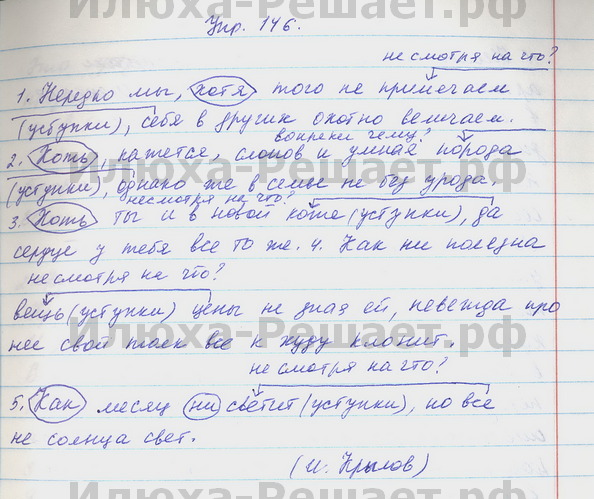 Илюха-Решает.рф
Упр. 146.
не смотря на что?
1. Нередко мы, хотя того не примечаем
(уступки), себя в других охотно величаем.
вопреки чему?
2. Хоть, кажется, слонов и умная порода
(уступки), однако же в семье не без урода.
несмотря на что?
3. Хоть ты и в новой коже (уступки), да
сердце у тебя все то же. 4. Как ни полезна
несмотря на что?
вещь (уступки) цены не зная ей, невежда про
нее свой толк все к худу клонит.
Илюха-Решает.рф
не смотря на что?
5. Как месяц ни светит (уступки), но все
не солнца свет.
(И. Крылов)
Илюха-Решает.рф